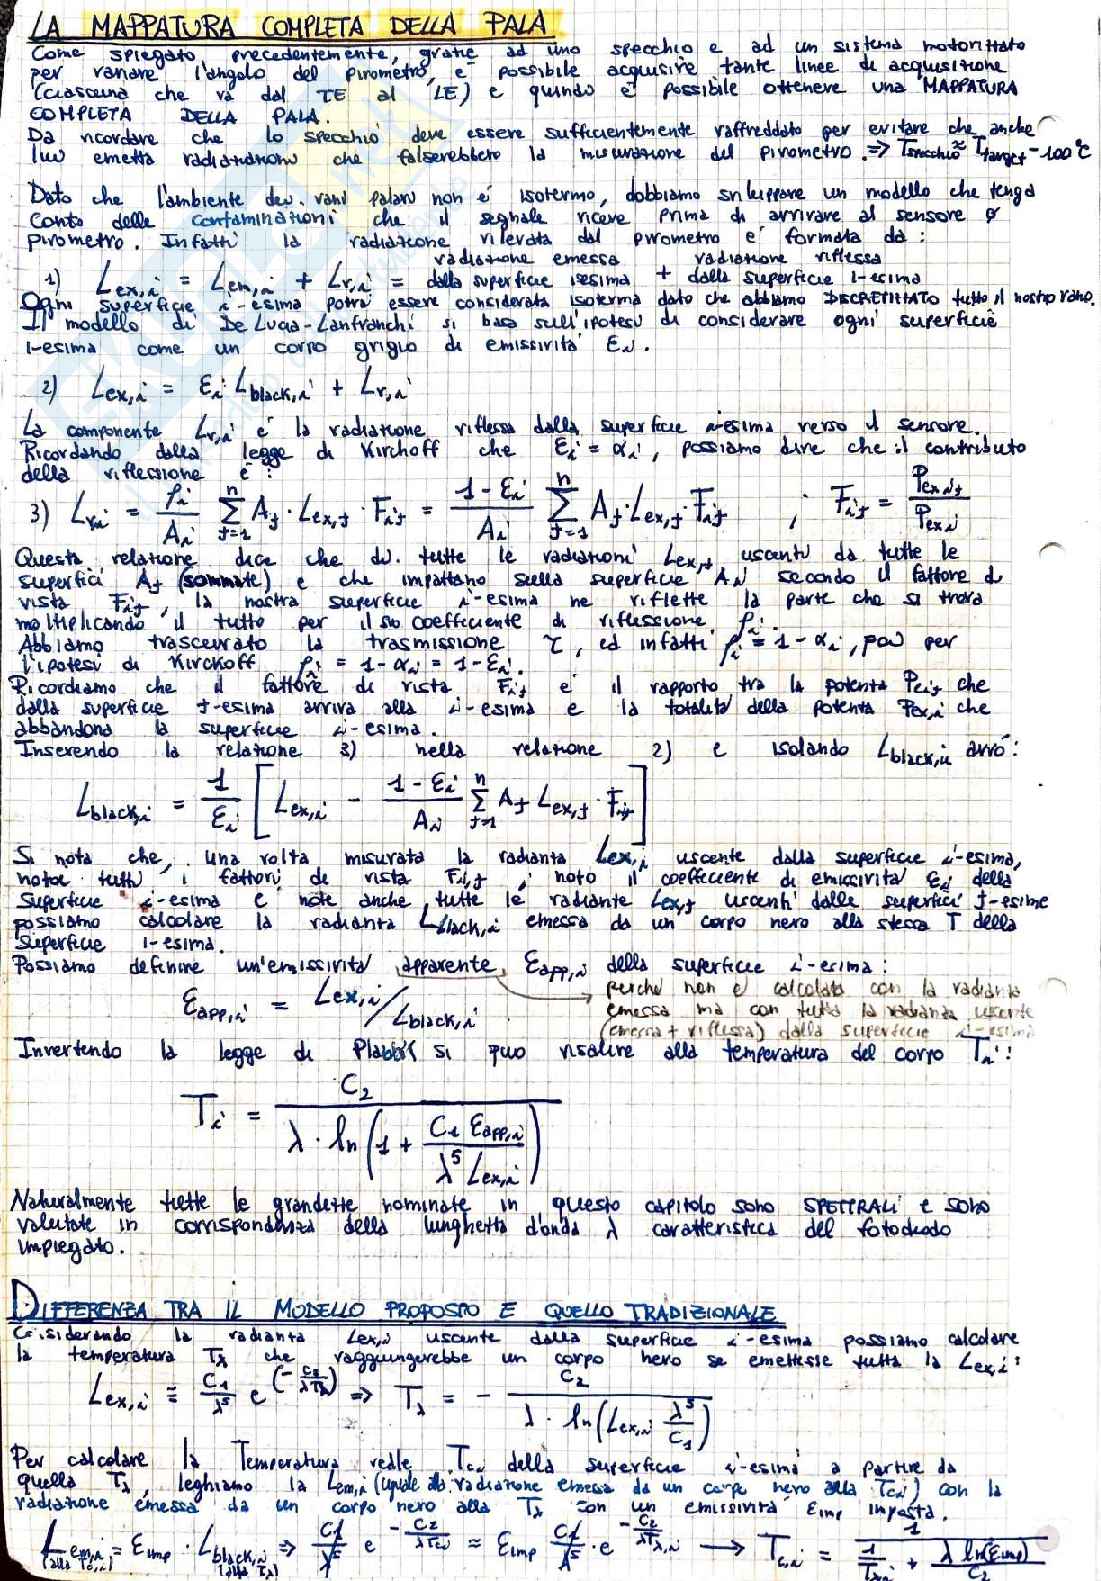 LA MAPPATURA COMPLETA DELLA PALA
Come spiegato precedentemente, grazie ad uno specchio e ad un sistema motorizzato
per variare l'angolo del pirometro, è possibile acquisire tante linee di acquisizione
(ciascuna che va dal TE al LE) e quindi è possibile ottenere una MAPPATURA
COMPLETA DELLA PALA.
Da ricordare che lo specchio deve essere sufficientemente raffreddato per evitare che anche
lui emetta radiazioni che falserebbero la misurazione del pirometro. => Tspecchio ≈ Ttarget - 100°C
Dato che l'ambiente dei vani palari non è isotermo, dobbiamo sviluppare un modello che tenga
conto delle contaminazioni che il segnale riceve prima di arrivare al sensore
pirometro. Infatti la radiazione rilevata dal pirometro è formata da:
1) Lex,i = Lem,i + Lr,i = radiazione emessa dalla superficie iesima + radiazione riflessa dalla superficie i-esima
Ogni superficie i-esima potrà essere considerata isoterma dato che abbiamo DISCRETIZZATO tutto il nostro vano.
Il modello di De Lucia-Lanfranchi si basa sull'ipotesi di considerare ogni superficie
i-esima come un corpo grigio di emissività εi.
2) Lex,i = εi Lblack,i + Lr,i
La componente Lr,i è la radiazione riflessa dalla superficie i-esima verso il sensore.
Ricordando dalla legge di Kirchoff che εi = αi, possiamo dire che il contributo
della riflessione è:
3) Lr,i = ρi/Ai Σ(j=1..n) Aj · Lex,j · Fi,j = (1-εi)/Ai Σ(j=1..n) Aj · Lex,j · Fi,j ; Fi,j = Pex,i,j / Pex,i
Questa relazione dice che di tutte le radiazioni Lex,j uscenti da tutte le
superfici Aj (sommate) e che impattano sulla superficie Ai secondo il fattore di
vista Fi,j, la nostra superficie i-esima ne riflette la parte che si trova
moltiplicando il tutto per il suo coefficiente di riflessione ρi.
Abbiamo trascurato la trasmissione τ, ed infatti ρi = 1 - αi, poi per
l'ipotesi di Kirckoff ρi = 1 - αi = 1 - εi.
Ricordiamo che il fattore di vista Fi,j è il rapporto tra la potenza Pei,j che
dalla superficie j-esima arriva alla i-esima e la totalità della potenza Pex,i che
abbandona la superficie i-esima.
Inserendo la relazione 3) nella relazione 2) e isolando Lblack,i avrò:
Lblack,i = 1/εi [ Lex,i - (1-εi)/Ai Σ(j=1..n) Aj Lex,j · Fi,j ]
Si nota che, una volta misurata la radianza Lex,i uscente dalla superficie i-esima,
note tutti i fattori di vista Fi,j, noto il coefficiente di emissività εi della
superficie i-esima e note anche tutte le radianze Lex,j uscenti dalle superfici j-esime
possiamo calcolare la radianza Lblack,i emessa da un corpo nero alla stessa T della
superficie i-esima.
Possiamo definire un'emissività apparente εapp,i della superficie i-esima:
εapp,i = Lex,i / Lblack,i
perchè non è calcolata con la radianza
emessa ma con tutta la radianza uscente
(emessa + riflessa) dalla superficie i-esima
Invertendo la legge di Planck si può risalire alla temperatura del corpo Ti:
Ti = C2 / ( λ · ln( 1 + C1 εapp,i / (λ⁵ Lex,i) ) )
Naturalmente tutte le grandezze nominate in questo capitolo sono SPETTRALI e sono
valutate in corrispondenza della lunghezza d'onda λ caratteristica del fotodiodo
impiegato.
DIFFERENZA TRA IL MODELLO PROPOSTO E QUELLO TRADIZIONALE
Considerando la radianza Lex,i uscente dalla superficie i-esima possiamo calcolare
la temperatura Tλ che raggiungerebbe un corpo nero se emettesse tutta la Lex,i:
Lex,i = C1/λ⁵ e^(-C2/λTλ) => Tλ = - C2 / ( λ · ln( Lex,i λ⁵/C1 ) )
Per calcolare la Temperatura reale Tc,i della superficie i-esima a partire da
quella Tλ, leghiamo la Lem,i (uguale alla radiazione emessa da un corpo nero alla Tc,i) con la
radiazione emessa da un corpo nero alla Tλ con un emissività εimp imposta.
Lem,i (alla Tc,i) = εimp · Lblack,i (alla Tλ) => C1/λ⁵ e^(-C2/λTc,i) = εimp C1/λ⁵ · e^(-C2/λTλ,i) → Tc,i = 1 / ( 1/Tλ,i + λ ln(εimp)/C2 )